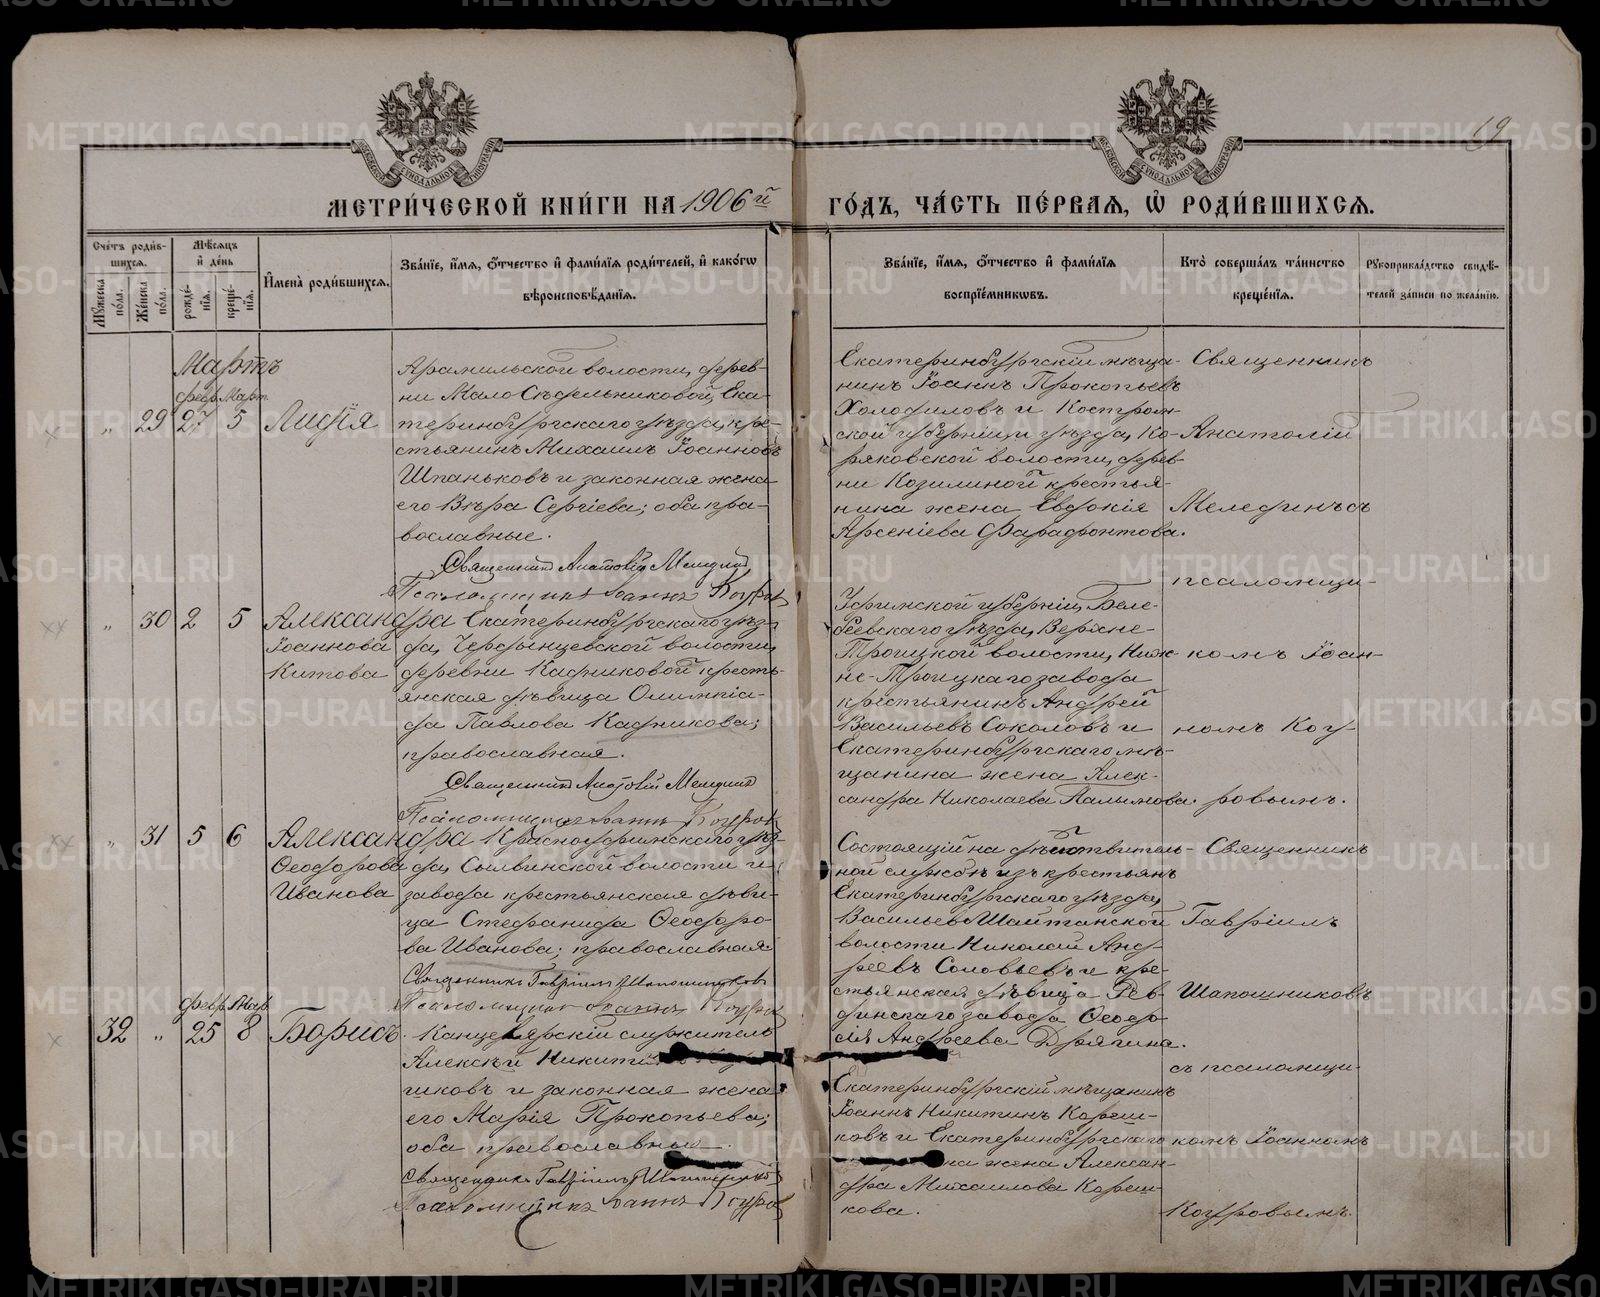 69
МЕТРИ́ЧЕСКОЙ КНИ́ГИ НА 1906й ГО́ДЪ, ЧА́СТЬ ПЕ́РВАЯ, Ѡ҆ РОДИ́ВШИХСЯ.
Сче́тъ роди́в-
шихся.
Мꙋ́жеска по́ла.
Же́нска по́ла.
Мѣ́сяцъ
и҆ де́нь
рожде́-
нїя.
креще́-
нїя.
И҆мена̀ роди́вшихся.
Зва́нїе, и҆́мя, ѻ҆́тчество и҆ фами́лїя роди́телей, и҆ како́гѡ
вѣроисповѣ́данїя.
Зва́нїе, и҆́мя, ѻ҆́тчество и҆ фами́лїя
воспрїе́мникѡвъ.
Кто̀ соверша́лъ та́инство
креще́нїя.
Рꙋкоприкла́дство свидѣ́-
телей за́писи по жела́нїю.
Мартъ
февр. Март.
„ 29 27 5 Лидія
Арамильской волости, дерев-
ни Мало-Сѣдельниковой, Ека-
теринбургскаго уѣзда, кре-
стьянинъ Михаилъ Іоанновъ
Шпаньковъ и законная жена
его Вѣра Сергіева; оба пра-
вославные.
Священникъ Анатолій Мелединъ
Псаломщикъ Іоаннъ Коуровъ
Екатеринбургскій мѣща-
нинъ Іоаннъ Прокопьевъ
Холодиловъ и Костром-
ской губерніи, и уѣзда, Ко-
ряковской волости, дерев-
ни Козилиной крестья-
нина жена Евдокія
Арсеніева Фарафонтова.
Священникъ
Анатолій
Меледінъ съ
псаломщи-
комъ Іоан-
номъ Коу-
ровымъ.
„ 30 2 5 Александра
Іоаннова
Китова
Екатеринбургскаго уѣз-
да, Чердынцевской волости,
деревни Кадниковой кресть-
янская дѣвица Олимпіа-
да Павлова Кадникова;
православная.
Священникъ Анатолій Меледінъ
Псаломщикъ Іоаннъ Коуровъ
Уфимской губерніи, Беле-
беевскаго уѣзда, Верхне-
Троицкой волости, Ниж-
не-Троицкаго завода
крестьянинъ Андрей
Васильевъ Соколовъ и
Екатеринбургскаго мѣ-
щанина жена Алек-
сандра Николаева Палымова.
„ 31 5 6 Александра
Ѳеодорова
Иванова
Красноуфимскаго уѣз-
да, Сылвинской волости и
завода крестьянская дѣви-
ца Стефанида Ѳеодоро-
ва Иванова; православная.
Священникъ Гавріилъ Шапошниковъ
Псаломщикъ Іоаннъ Коуровъ
Состоящій на дѣйствитель-
ной службѣ изъ крестьянъ
Екатеринбургскаго уѣзда,
Васильево-Шайтанской
волости Николай Анд-
реевъ Соловьевъ и кре-
стьянская дѣвица Рев-
динскаго завода Ѳеодо-
сія Андреева Дрягина.
Священникъ
Гавріилъ
Шапошниковъ
съ псаломщи-
комъ Іоанномъ
Коуровымъ.
февр. Мар.
32 „ 25 8 Борисъ.
Канцелярскій служитель
Алексѣй Никитинъ
иковъ и законная жена
его Марія Прокопьева;
оба православные.
Священникъ Гавріилъ Шапошниковъ
Псаломщикъ Іоаннъ Коуровъ
Екатеринбургскій мѣщанинъ
Іоаннъ Никитинъ Кореш-
ковъ и Екатеринбургскаго
на жена Алексан-
дра Михаилова Кореш-
кова.